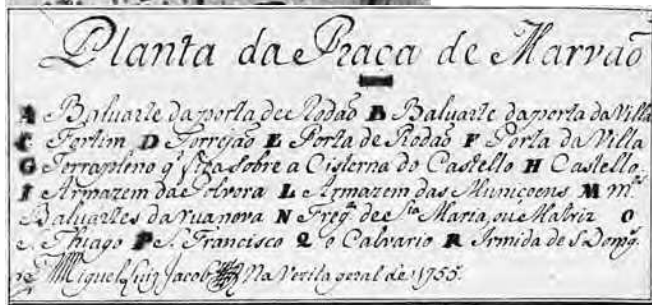 Planta da Praça de Marvaõ
A Baluarte da porta de Rodaõ B Baluarte da porta da Villa
C Fortim D Torrejaõ E Porta de Rodaõ F Porta da Villa
G Terrapleno q̃ fica sobre a Cisterna do Castello H Castello
I Armazem da Polvora L Armazem das Municoens M m.ᵒˢ
Baluartes da rua nova N Freg.ᵃ de S.ᵗᵃ Maria, ou Matriz O
S. Thiago P S. Francisco Q o Calvario R Irmida de S. Domᵍ.
Miguel Luiz Jacob Na Vezita geral de 1755.